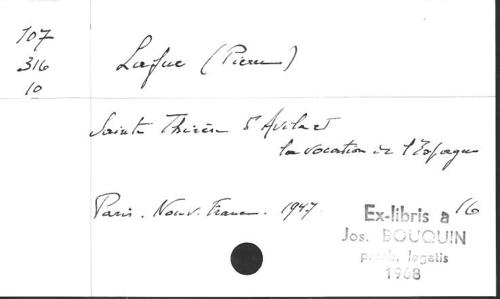 107
316
10
Lafue (Pierre)
Sainte Thérèse d'Avila et
la vocation de l'Espagne
Paris. Nouv. France. 1947.
16
Ex-libris a
Jos. BOUQUIN
presb. legatis
1968